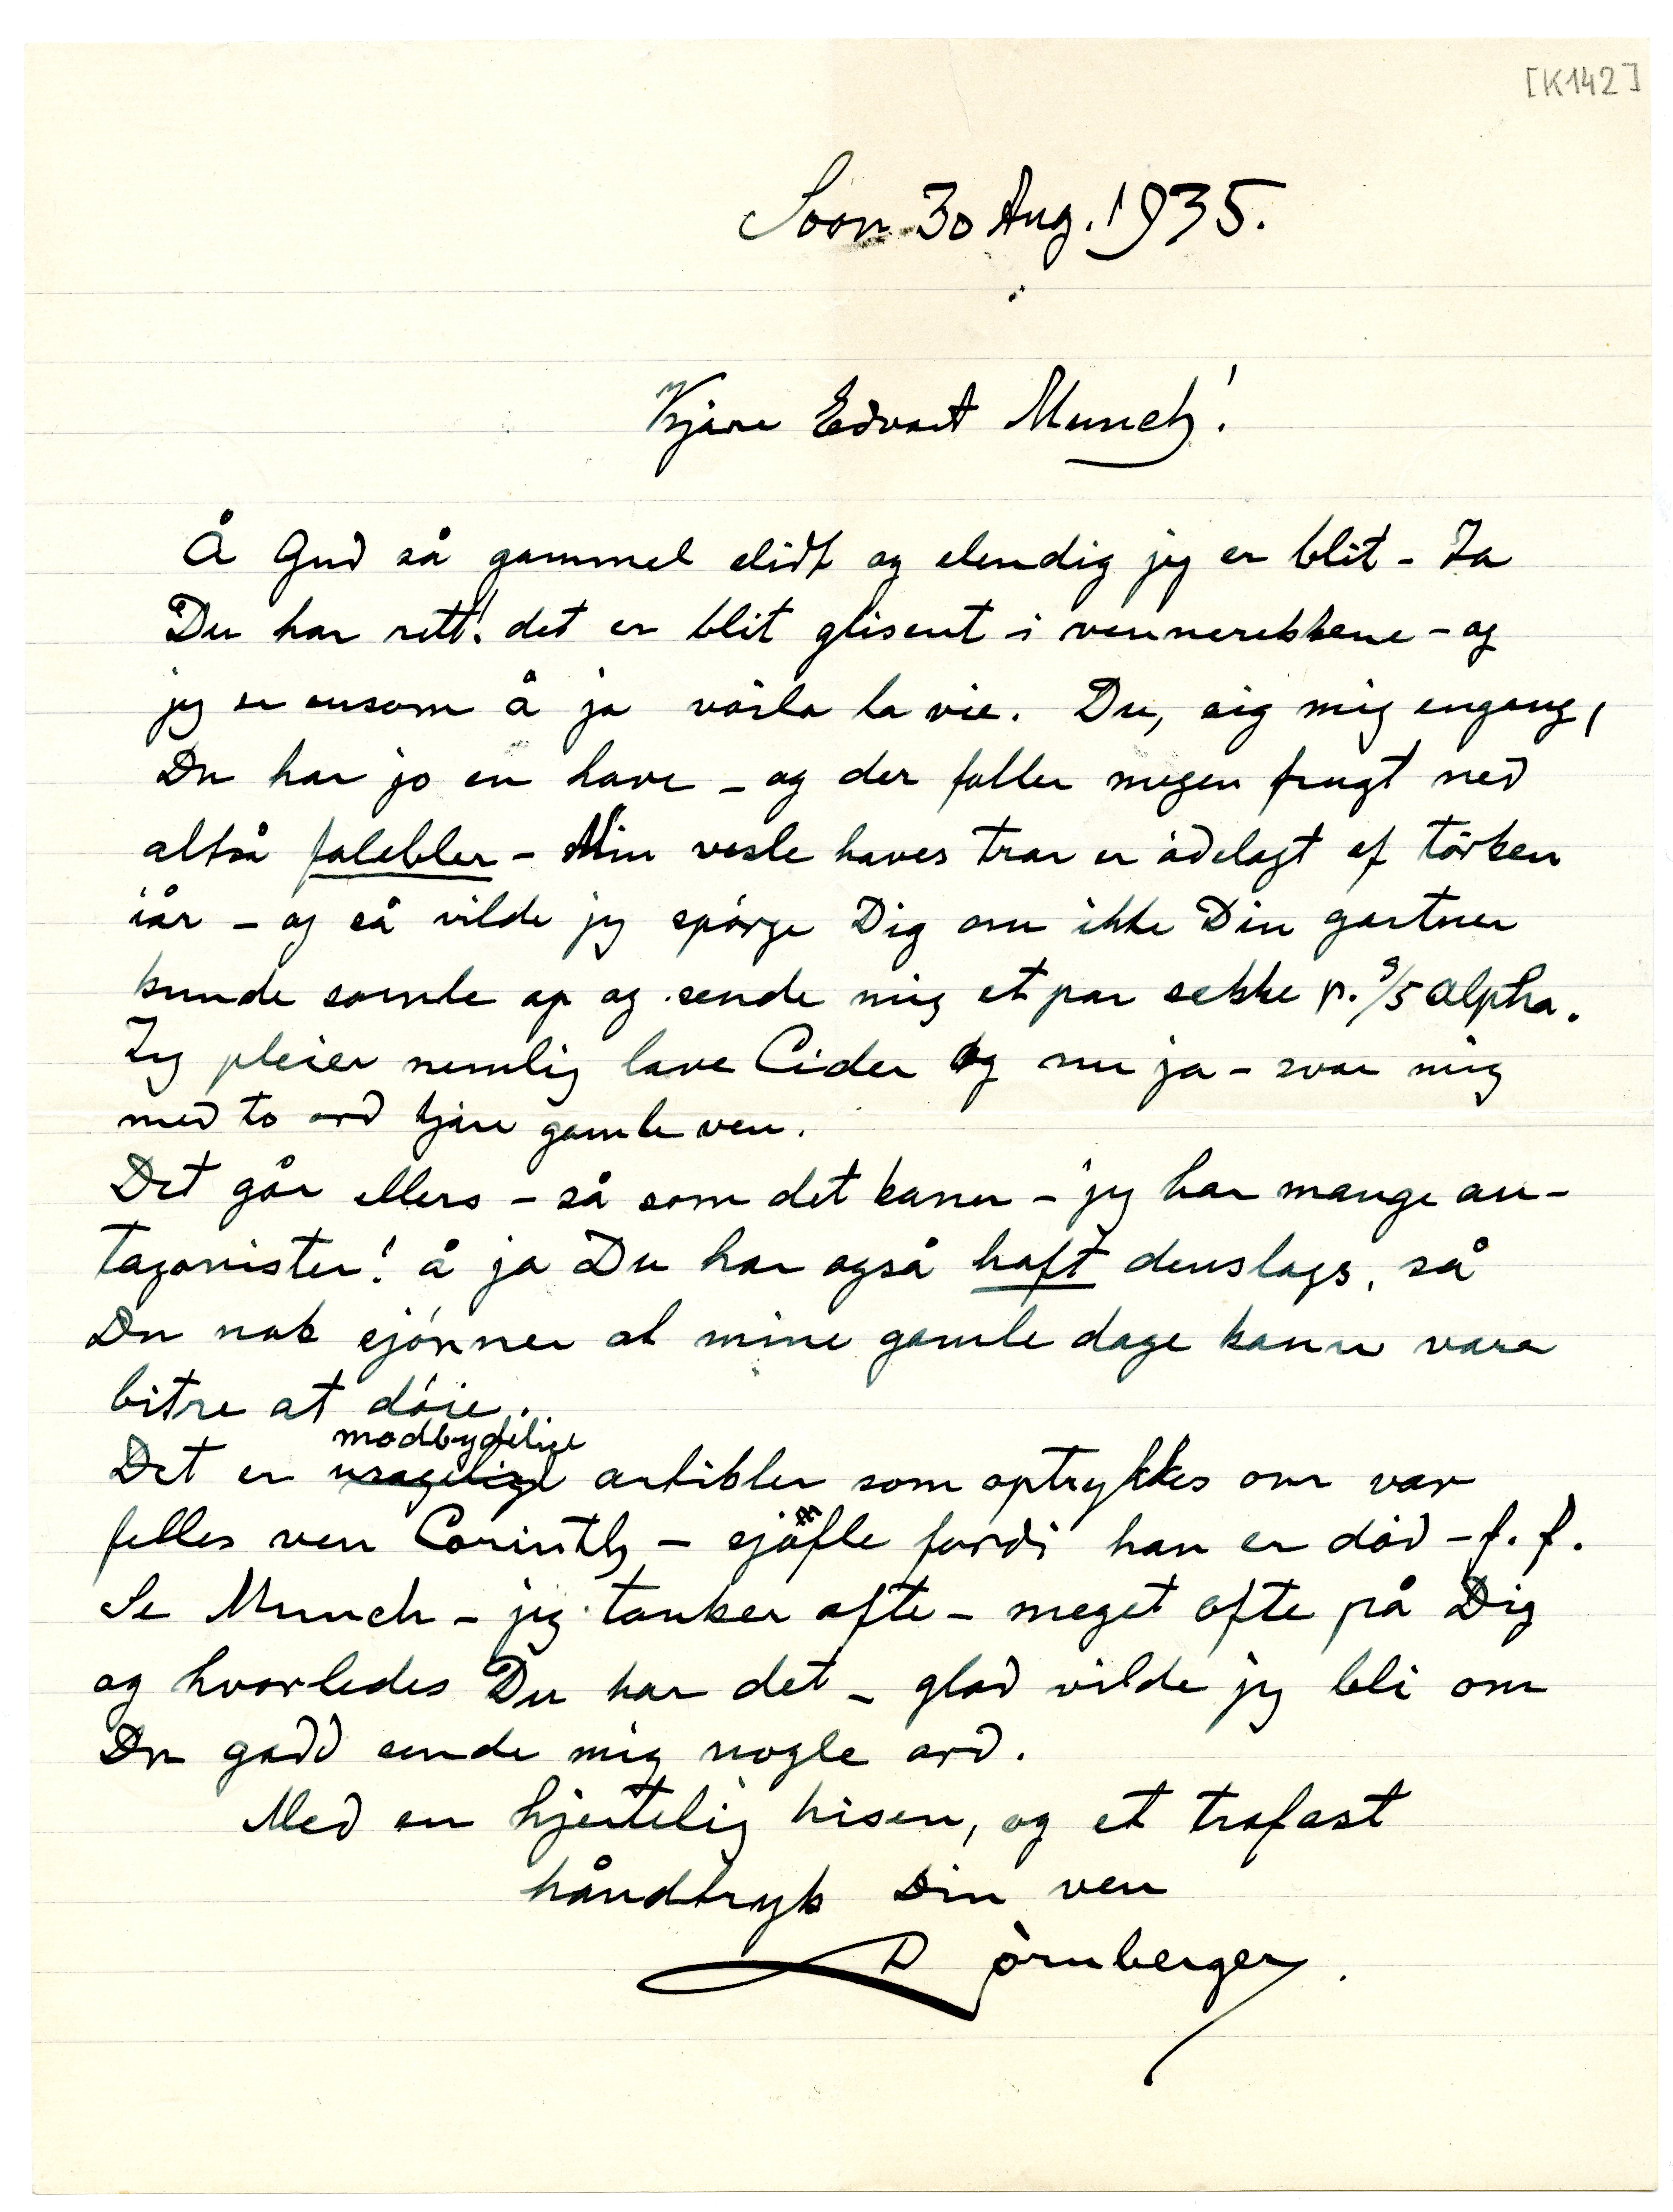 [K142]
Soon 30 Aug. 1935.
Kjære Edvart Munch!
Å Gud så gammel slidt og elendig jeg er blit – Ja
Du har rett! det er blit glisent i vennerekkene – og
jeg er ensom å ja voila la vie. Du, sig mig engang,
Du har jo en have – og der faller megen frugt ned
altså falebler – Min vesle haves trær er ödelagt af törken
iår – og så vilde jeg spörge Dig om ikke Din gartner
kunde samle op og sende mig et par sekke p. S/S Alpha.
Jeg pleier nemlig lave Cider og nu ja – svar mig
med to ord kjære gamle ven.
Det går ellers – så som det kann – jeg har mange an-
tagonister! å ja Du har også haft denslags, så
Du nok sjönner at mine gamle dage kann være
bitre at döie.
modbydelige
Det er usagelige artikler som optrykkes om vor
felles ven Corinth – sjöfle fordi han er död – f. f.
Se Munch – jeg tænker ofte – meget ofte på Dig
og hvorledes Du har det – glad vilde jeg bli om
Du gadd sende mig nogle ord.
Med en hjertelig hisen, og et trofast
håndtryk Din ven
Dörnberger.